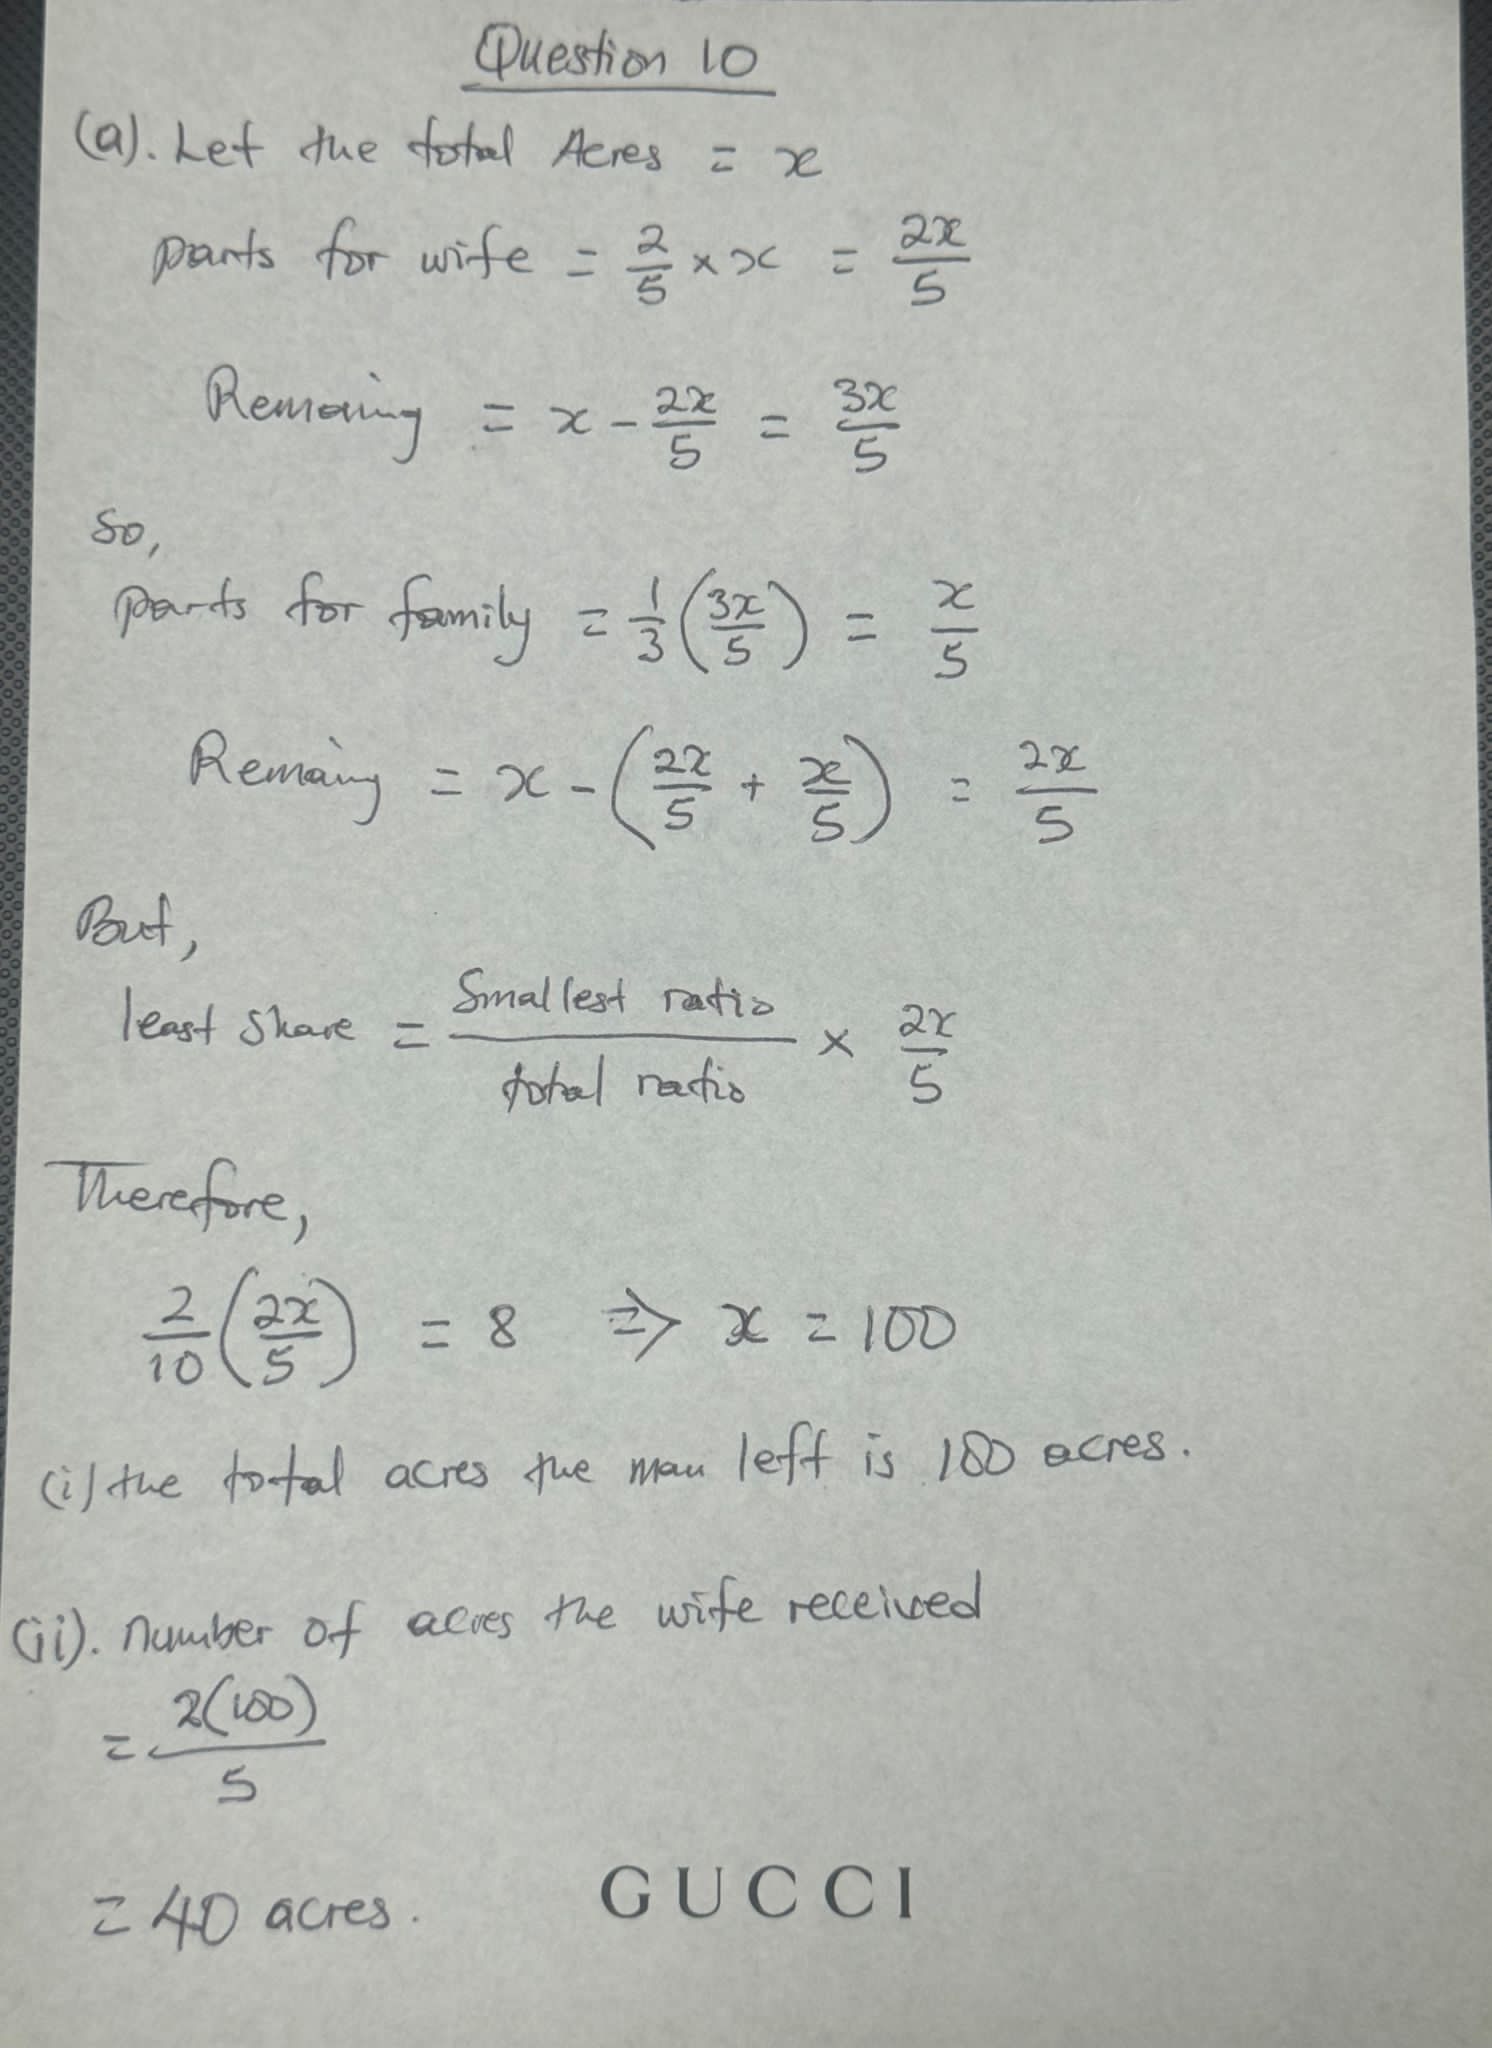 Question 10
(a). Let the total Acres = x
parts for wife = 2/5 × x = 2x/5
Remaing = x - 2x/5 = 3x/5
So,
parts for family = 1/3 (3x/5) = x/5
Remaing = x - (2x/5 + x/5) = 2x/5
But,
least share = Smallest ratio / total ratio × 2x/5
Therefore,
2/10 (2x/5) = 8 ⇒ x = 100
(i) the total acres the man left is 100 acres.
(ii). number of acres the wife received
= 2(100)/5
= 40 acres.
GUCCI